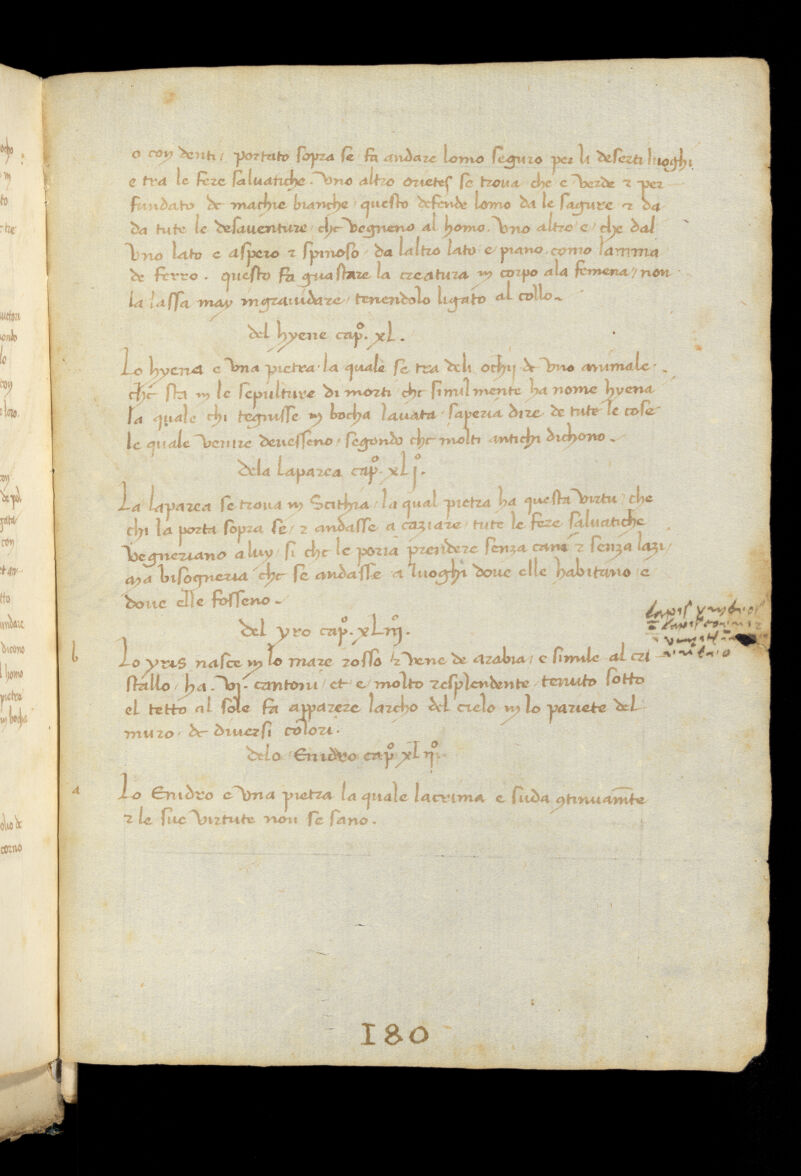 o con denti, portato sopra se fa andare lomo seguro per li deserti luoghi
e tra le fere saluatiche. Vno altro orietes se troua che e verde & per
fundato de machie bianche. questo defende lomo da le sagure & da
da tute le desauenture, che vegneno al homo. Vno altro e, che dal
Vno lato e aspero & spinoso, da laltro lato e piano como lamma
de ferro. questo fa guastare la creatura in corpo ala femena, non
la lassa may ingrauidare, tenendolo ligato al collo.
del hyene cap.º xL.
Lo hyena e vna pietra, la quale se tra deli ochij de vno animale.
che sta in le sepulture di morti che similmente ha nome hyena
la quale chi tegnisse in bocha lauata, saperia dire de tute le cose
le quale venire deuesseno, segondo che molti antichi dichono.
dela laparea cap.º xLj.º
La laparea se troua in Scithia, la qual pietra ha questa virtu, che
chi la porta sopra se, & andasse a caziare, tute le fere saluatiche
vegneriano a luy, si che le poria prendere senza cani & senza lazi,
Ma bisogneria che se andasse a luoghi doue elle habitano e
doue elle fosseno.
del yro cap.º xLiij.º
b Lo yris nasce in lo mare rosso & vene de arabia, e simile al cri
stallo, ha .vj. cantoni, et e molto resplendente, tenuto sotto
el tetto al sole fa apparere larcho del cielo in lo pariete del
muro, de diuersi colori.
delo Enidro cap.º xLij.º
a Lo Enidro e vna pietra la quale lacrima e suda 9tinuam̄te
& le sue virtute non se sano.
180